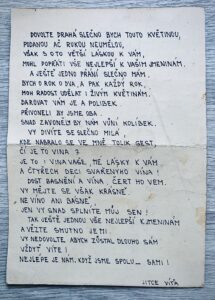 DOVOLTE DRAHÁ SLEČNO BYCH TOUTO KVĚTINOU,
PODANOU AČ RUKOU NEUMĚLOU,
VŠAK S O TO VĚTŠÍ LÁSKOU K VÁM,
MOHL POPŘÁTI VŠE NEJLEPŠÍ K VAŠIM JMENINÁM,
A JEŠTĚ JEDNO PŘÁNÍ SLEČNO MÁM,
BYCH O ROK O DVA, A PAK KAŽDÝ ROK,
MOH RADOST UDĚLAT I ŽIVÝM KVĚTINÁM,
DAROVAT VÁM JE A POLIBEK.
PŘIVONĚLI BY JSME OBA.
SNAD ZAVONĚJÍ BY NÁM VŮNÍ KOLÍBEK.
VY DIVÍTE SE SLEČNO MILÁ,
KDE NABRALO SE VE MNĚ TOLIK GEST,
ČÍ JE TO VINA?
JE TO! VINA VAŠE, MÉ LÁSKY K VÁM
A ČTYŘECH DECI SVAŘENÝHO VÍNA!
DOST BÁSNĚNÍ A VÍNA, ČERT HO VEM.
VY MĚJTE SE VŠAK KRÁSNĚ
NE VÍNO ANI BÁSNĚ,
JEN VY SNAD SPLNÍTE MŮJ SEN!
TAK JEŠTĚ JEDNOU VŠE NEJLEPŠÍ K JMENINÁM
A VĚZTE SMUTNO JE MI.
VY NEDOVOLTE, ABYCH ZŮSTAL DLOUHO SÁM
VŽDYŤ VÍTE!
NEJLÉPE JE NÁM, KDYŽ JSME SPOLU... SAMI!
VÍŤA